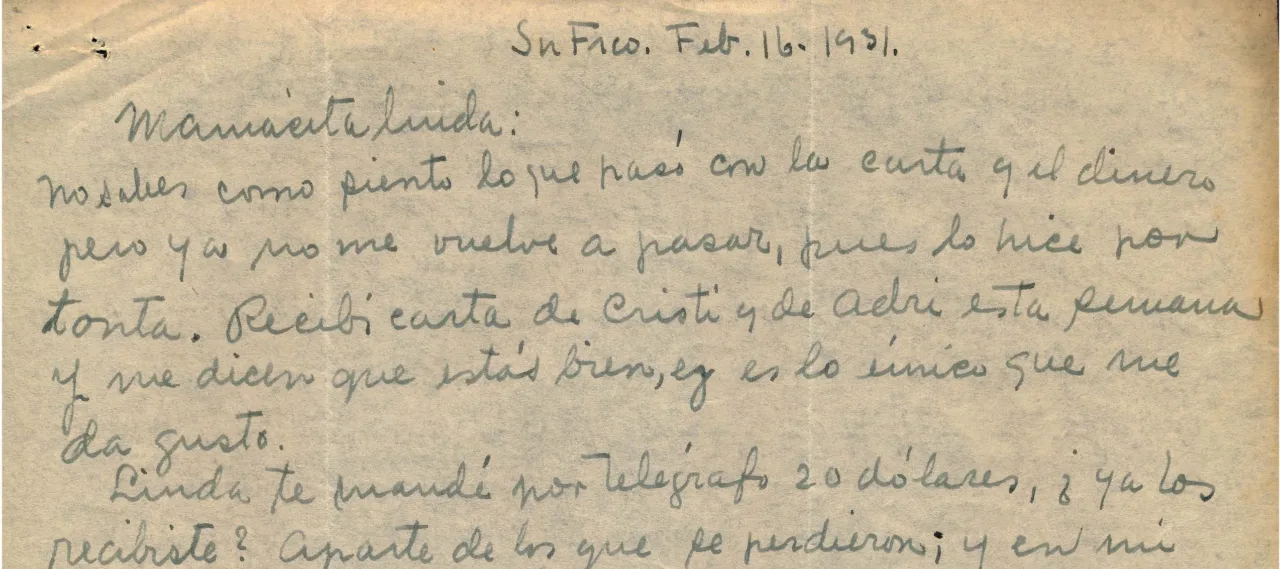 Sn Frco. Feb. 16- 1931.
Mamacita linda:
no sabes como siento lo que pasó con la carta y el dinero
pero ya no me vuelve a pasar, pues lo hice por
tonta. Recibí carta de Cristi y de Adri esta semana
y me dicen que estás bien, y es lo único que me
da gusto.
Linda te mandé por telégrafo 20 dólares, ¿ ya los
recibiste? Aparte de los que se perdieron; y en mi